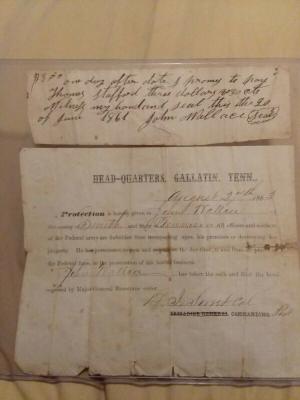 one day after date I promis to pay
Thomas Stafford three dollars & 20 cts
Witness my hand and seal this the 20
of June 1861 John Wallace (Seal)
HEAD-QUARTERS, GALLATIN, TENN.,
August 186
Protection is hereby given to Wallace
the county Smith and State Tennessee all officers and soldiers
of the Federal army are forbidden from trespassing upon his premises or destroying his
property. He has permission to pass and
the Federal lines, in the prosecution of his lawful business.
John Wallace has taken the oath and filed the bond
required by Major-General Rosecrans order
Col
BRIGADIER GENERAL COMMANDING